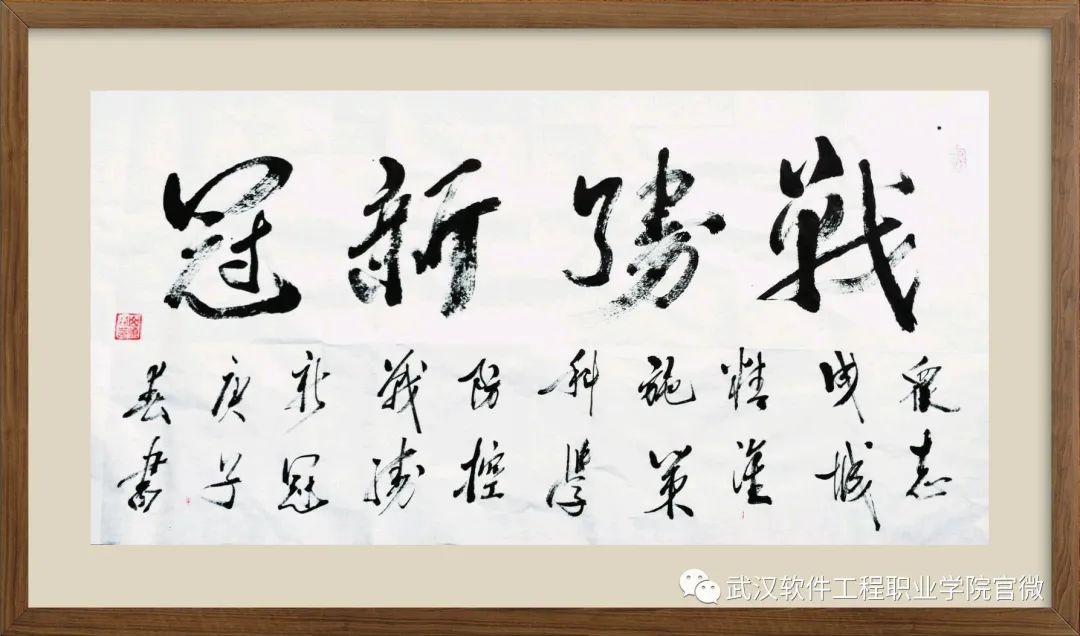 戰勝新冠
衆志
成城
精準
施策
科學
防控
戰勝
新冠
庚子
春書
武汉软件工程职业学院官微